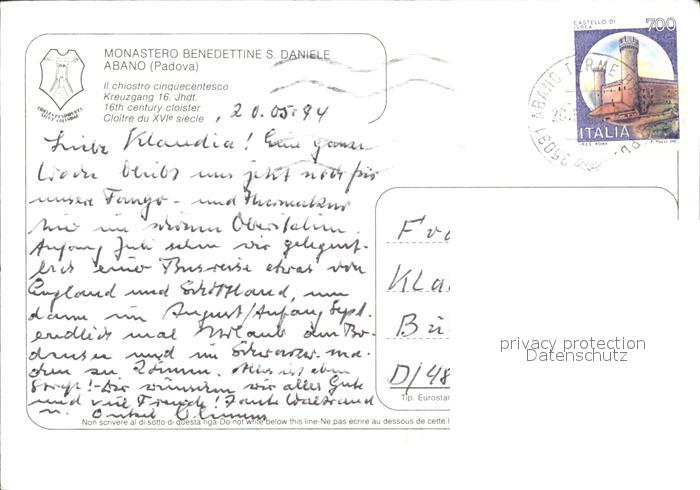 CASTELLO DI
IVREA
700
ITALIA
ABANO TERME
35031
MONASTERO BENEDETTINE S. DANIELE
ABANO (Padova)
Il chiostro cinquecentesco
Kreuzgang 16. Jhdt.
16th century cloister
Cloître du XVIe siècle
, 20.05.94
Liebe Klaudia! Eine ganze
Woche bleibt uns jetzt noch für
unsere Fango- und Thermalkur
hier im schönen Oberitalien.
Anfang Juli sehen wir gelegent-
lich einer Busreise etwas von
England und Schottland, um
dann im August/Anfang Sept.
endlich mal Urlaub am Bo-
densee und im Schwarzw. ma-
chen zu können. Alles ist eben
Streß! - Dir wünschen wir alles Gute
und viel Freude! Tante Waltraud
u. Onkel
Fra
Kla
Bü
D/48
privacy protection
Datenschutz
Tip. Eurostar
Non scrivere al di sotto di questa riga-Do not write below this line-Ne pas écrire au dessous de cette l